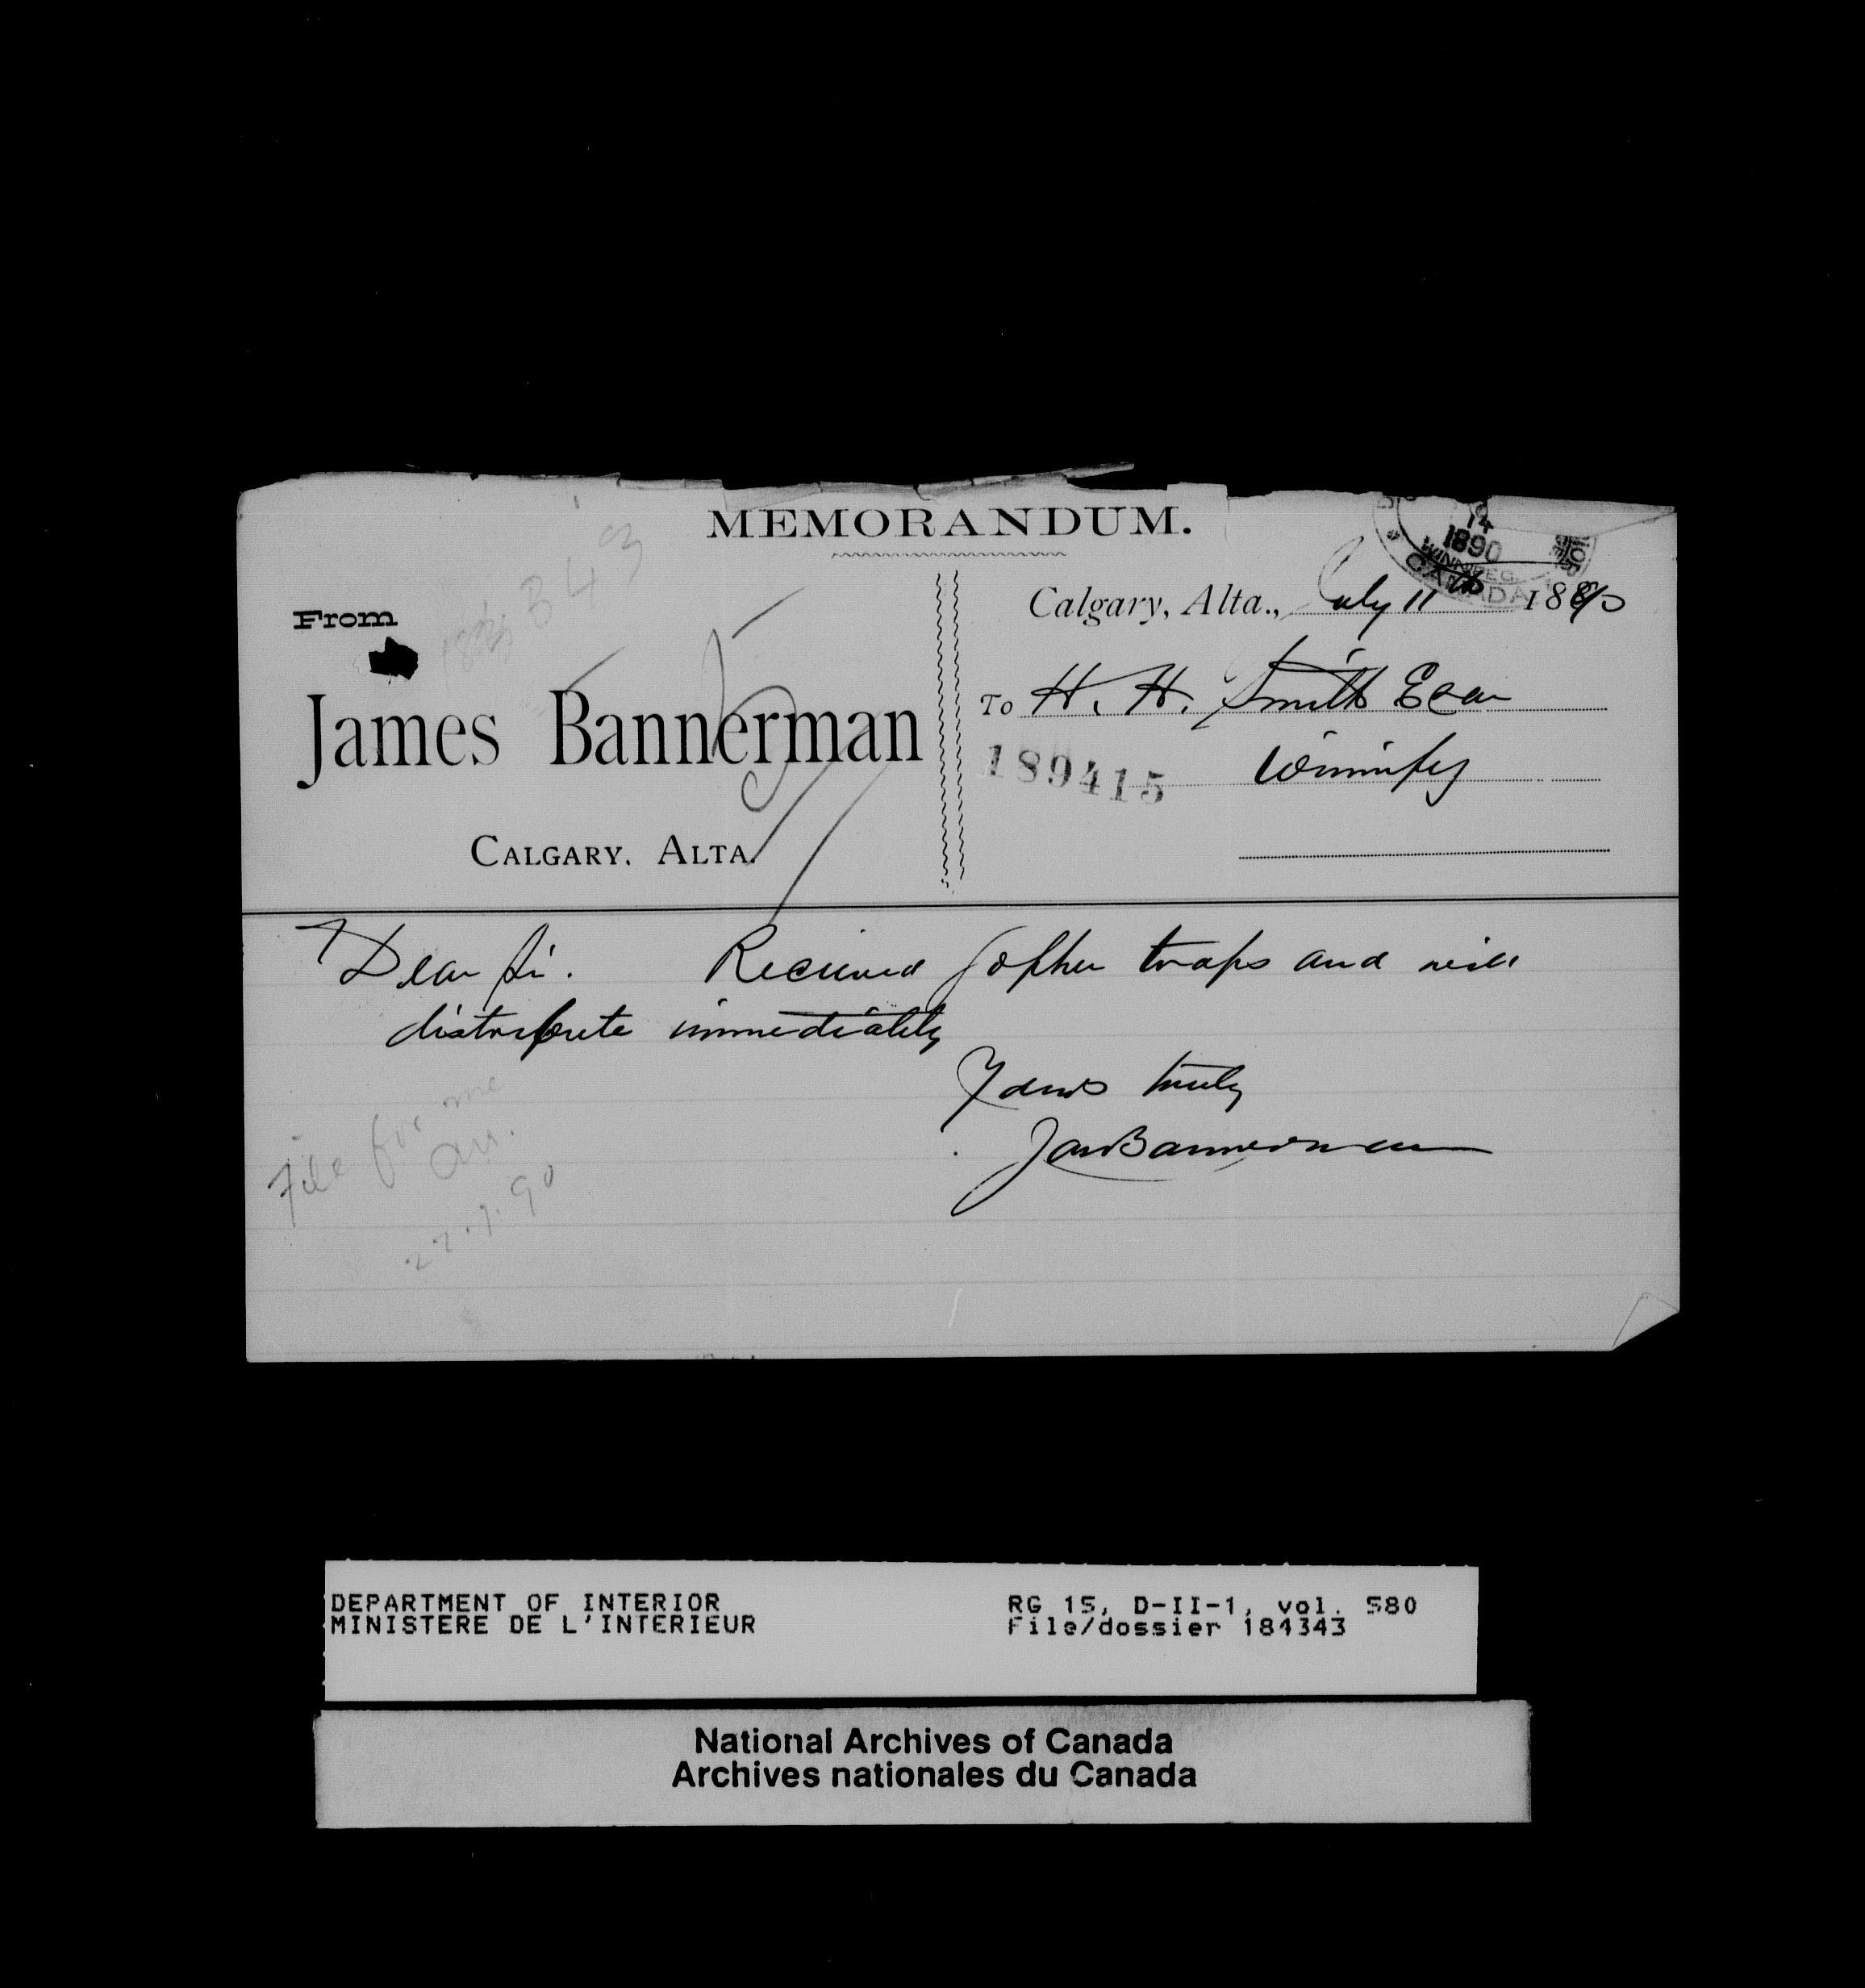 MEMORANDUM.
14
1890
WINNIPEG
CANADA
From
James Bannerman
CALGARY, ALTA.
Calgary, Alta., July 11th 1890
To H. H. Smith Esqr
Winnipeg
189415
Dear Sir. Received Gopher traps and will
distribute immediately
Yours truly
Jas Bannerman
File for me
22.7.90
DEPARTMENT OF INTERIOR
MINISTERE DE L'INTERIEUR
RG 15, D-II-1, vol. 580
File/dossier 184343
National Archives of Canada
Archives nationales du Canada